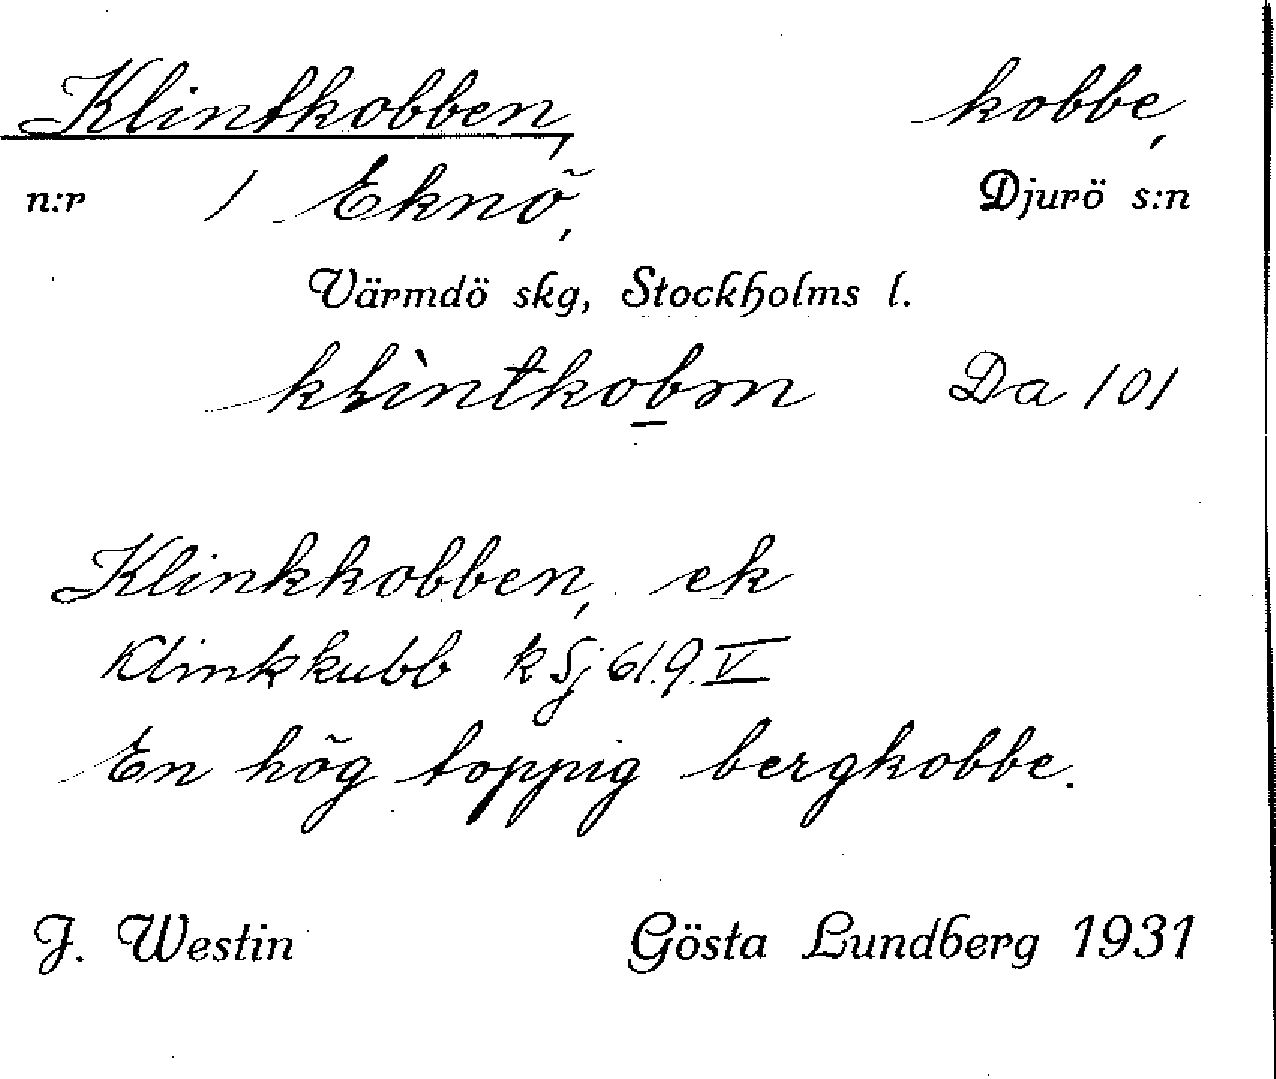 Klintkobben, kobbe,
n:r 1 Eknö, Djurö s:n
Värmdö skg, Stockholms l.
klìntkobm Da 101
Klinkkobben, ek
Klinkkubb k Sj 61.9.V
En hög toppig bergkobbe.
J. Westin Gösta Lundberg 1931